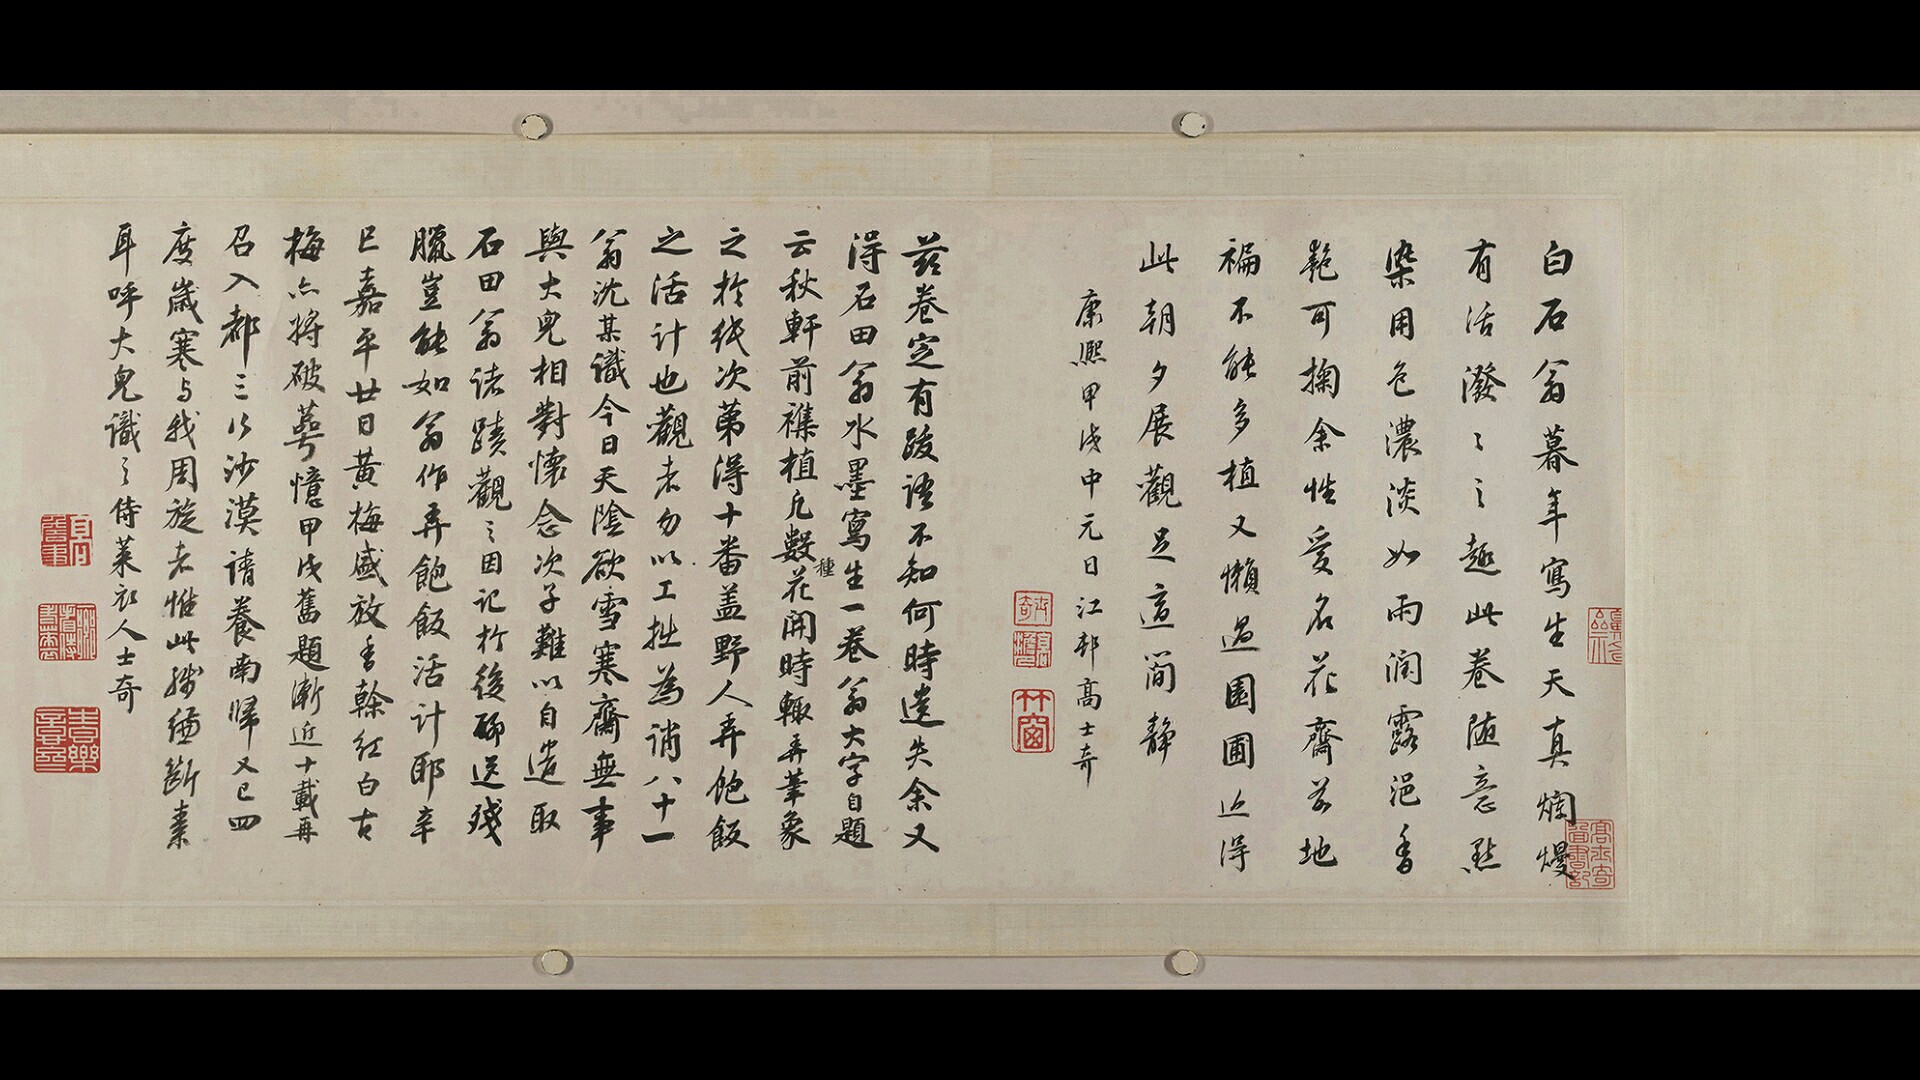 白石翁暮年寫生天真爛熳
有活潑〻之趣此卷随意點
染用色濃淡如雨潤露浥香
艶可掬余性愛名花齋前地
褊不能多植又懶過園圃近得
此朝夕展觀足適閒靜
康熙甲戌中元日江邨高士奇
茲卷定有跋語不知何時遺失余又
得石田翁水墨寫生一卷翁大字自題
云秋軒前襍植凡數種花開時輙弄筆象
之於紙次第得十番盖野人弄飽飯
之活計也觀者勿以工拙為誚八十一
翁沈某識今日天陰欲雪寒齋無事
與大兒相對懷念次子難以自遣取
石田翁諸蹟觀之因記於後聊送殘
臘豈能如翁作弄飽飯活計耶辛
巳嘉平廿日黄梅盛放香餘紅白古
梅亦將破萼憶甲戌舊題漸近十載再
召入都三從沙漠請養南歸又已四
度歲寒与我周旋者惟此殘縑斷素
耳呼大兒識之侍萊衣人士奇
竹窗